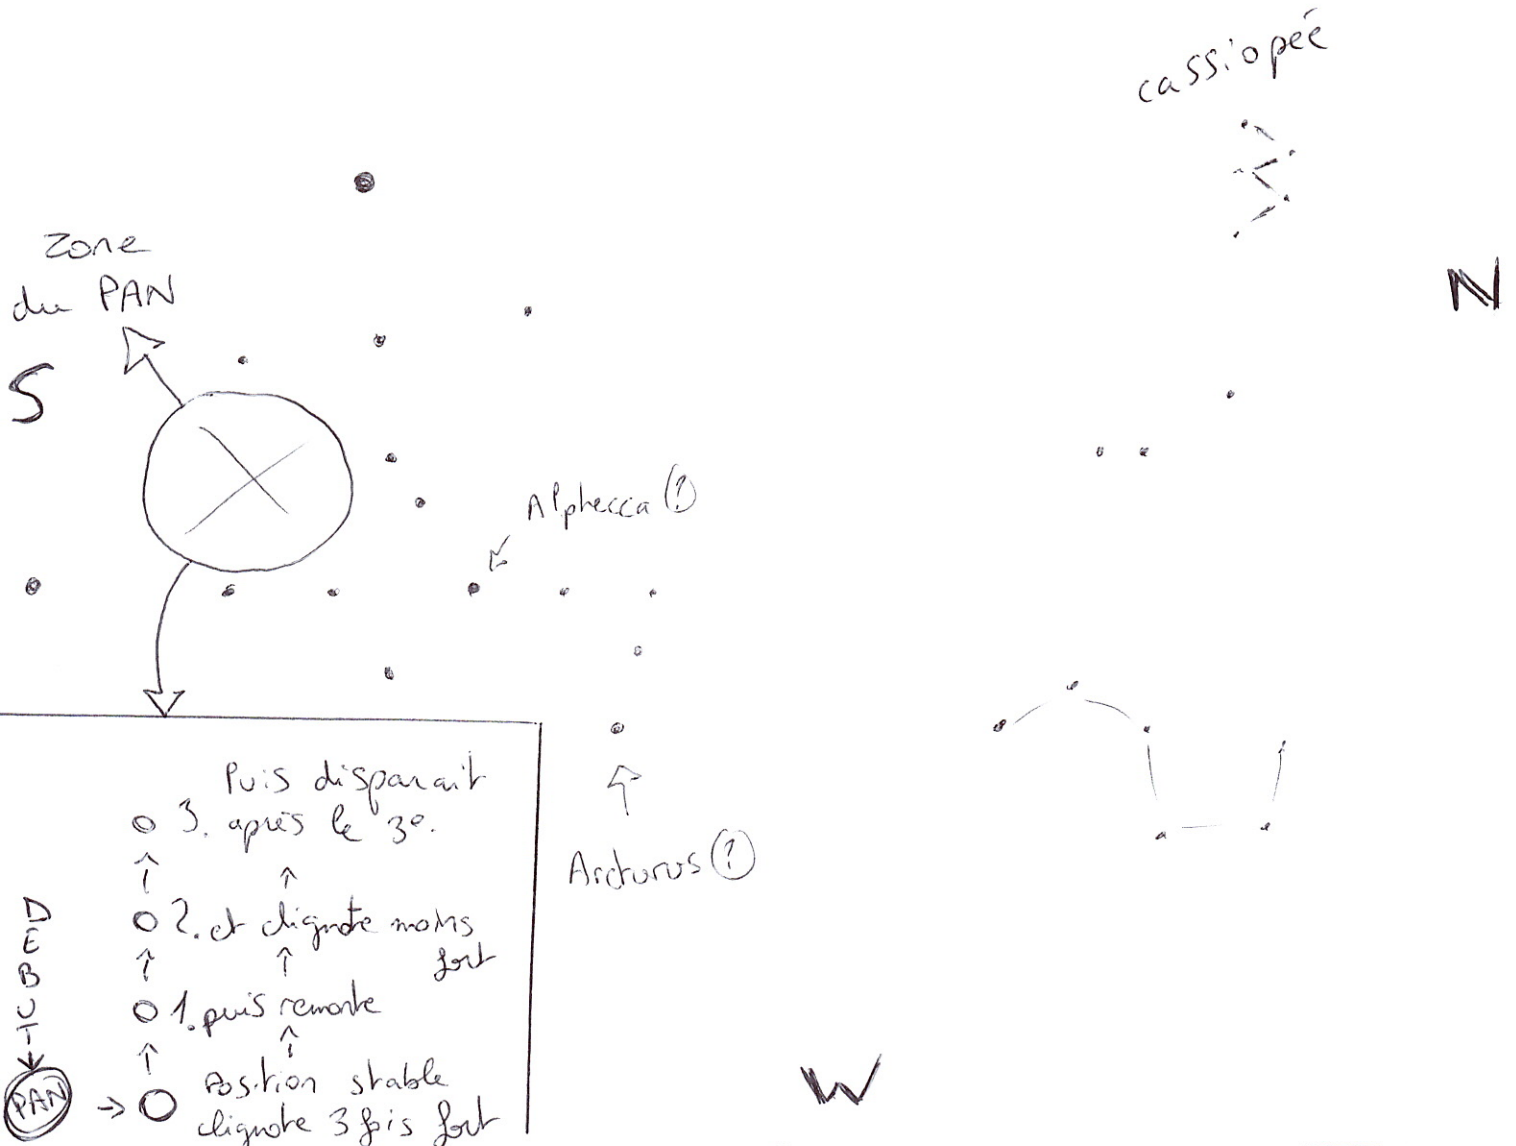 cassiopée
Zone
du PAN
N
S
Alphecca (?)
Arcturus (?)
Puis disparait
3. après le 3e.
2. et clignote moins
fort
1. puis remonte
Position stable
clignote 3 fois fort
DEBUT
PAN
W